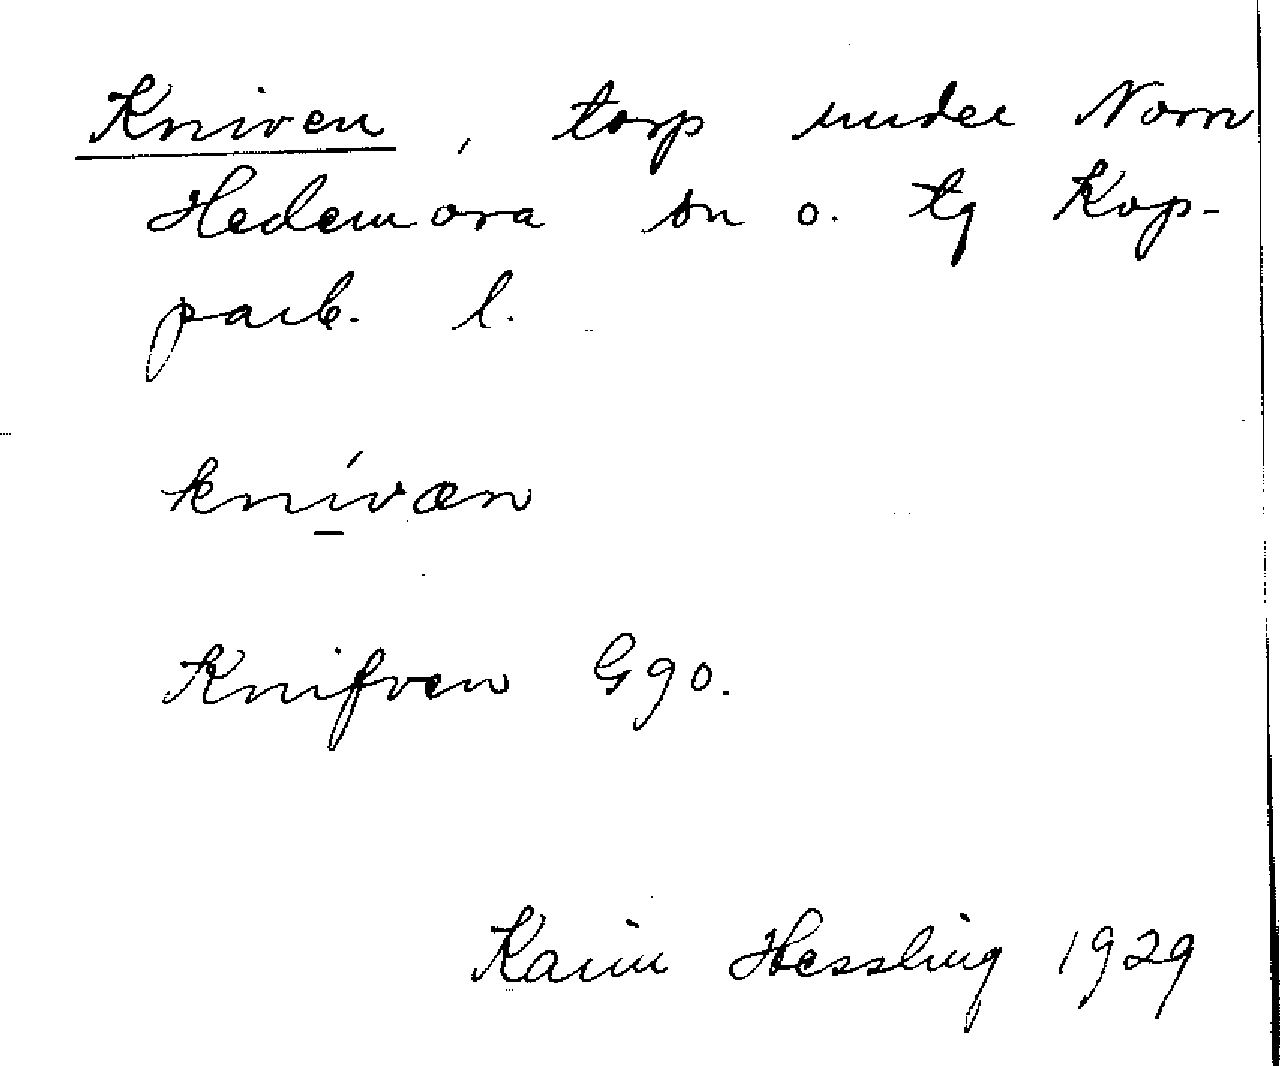 Kniven, torp under Norn
Hedemora sn o. tg Kop-
parb. l.
knívæn
Knifven G90.
Karin Hessling 1929